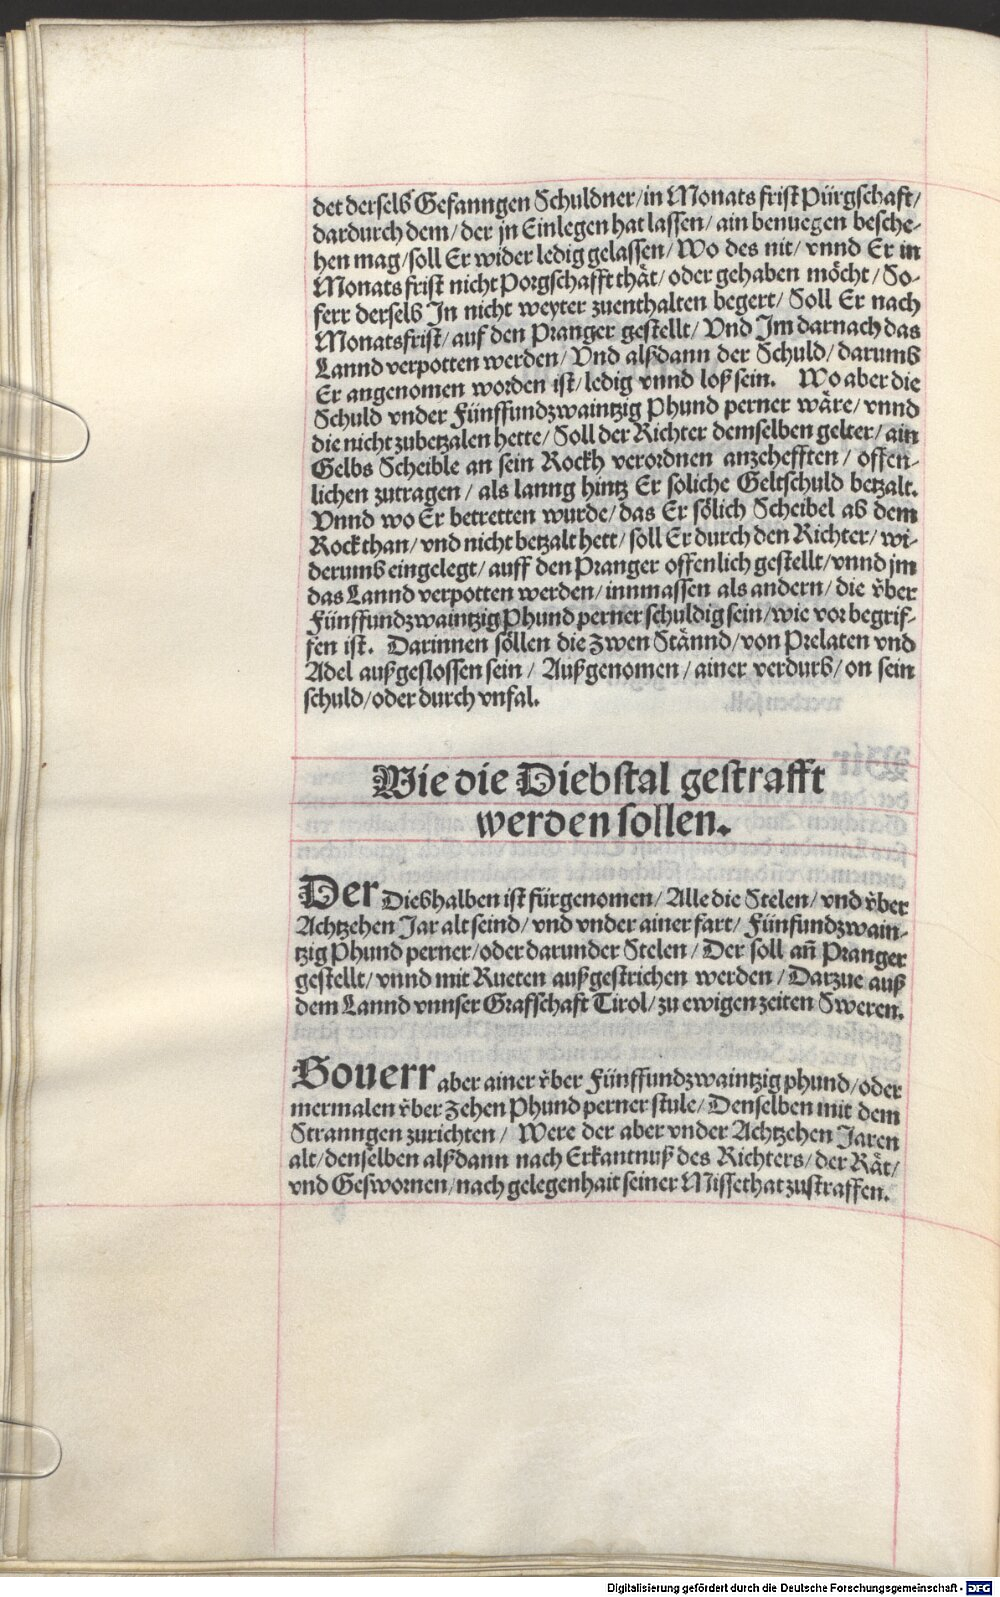 det derselb Gefanngen Schuldner/in Monats frist Pürgschaft/
dardurch dem/der jn Einlegen hat lassen/ain benuegen besche-
hen mag/soll Er wider ledig gelassen/Wo des nit/vnnd Er in
Monats frist nicht Porgschafft thät/oder gehaben möcht/So-
ferr derselb Jn nicht weyter zuenthalten begert/Soll Er nach
Monatsfrist/auf den Pranger gestellt/Vnd Im darnach das
Lannd verpotten werden/Vnd alßdann der Schuld/darumb
Er angenomen worden ist/ledig vnnd loß sein. Wo aber die
Schuld vnder Fünffundzwaintzig Phund perner wäre/vnnd
die nicht zubetzalen hette/Soll der Richter demselben gelter/ain
Gelbs Scheible an sein Rockh verordnen anzehefften/offen-
lichen zutragen/als lanng hintz Er soliche Geltschuld betzalt.
Vnnd wo Er betretten wurde/das Er sölich Scheibel ab dem
Rock than/vnd nicht betzalt hett/soll Er durch den Richter/wi-
derumb eingelegt/auff den Pranger offenlich gestellt/vnnd jm
das Lannd verpotten werden/innmassen als andern/die vͤber
Fünffundzwaintzig Phund perner schuldig sein/wie vor begrif-
fen ist. Darinnen söllen die zwen Stännd/von Prelaten vnd
Adel außgeslossen sein/Außgenomen/ainer verdurb/on sein
schuld/oder durch vnfal.
Wie die Diebstal gestrafft
werden sollen.
Der Diebhalben ist fürgenomen/Alle die Stelen/vnd vͤber
Achtzehen Jar alt seind/vnd vnder ainer fart/Fünfundzwain-
tzig Phund perner/oder darunder Stelen/Der soll an̄ Pranger
gestellt/vnnd mit Rueten außgestrichen werden/Darzue auß
dem Lannd vnnser Grafschaft Tirol/zu ewigen zeiten Sweren.
Souerr aber ainer vͤber Fünffundzwaintzig phund/oder
mermalen vͤber zehen Phund perner stule/Denselben mit dem
Stranngen zurichten/Were der aber vnder Achtzehen Jaren
alt/denselben alßdann nach Erkantnuß des Richters/der Rät/
vnd Geswornen/nach gelegenhait seiner Missethat zustraffen.
Digitalisierung gefördert durch die Deutsche Forschungsgemeinschaft - DFG